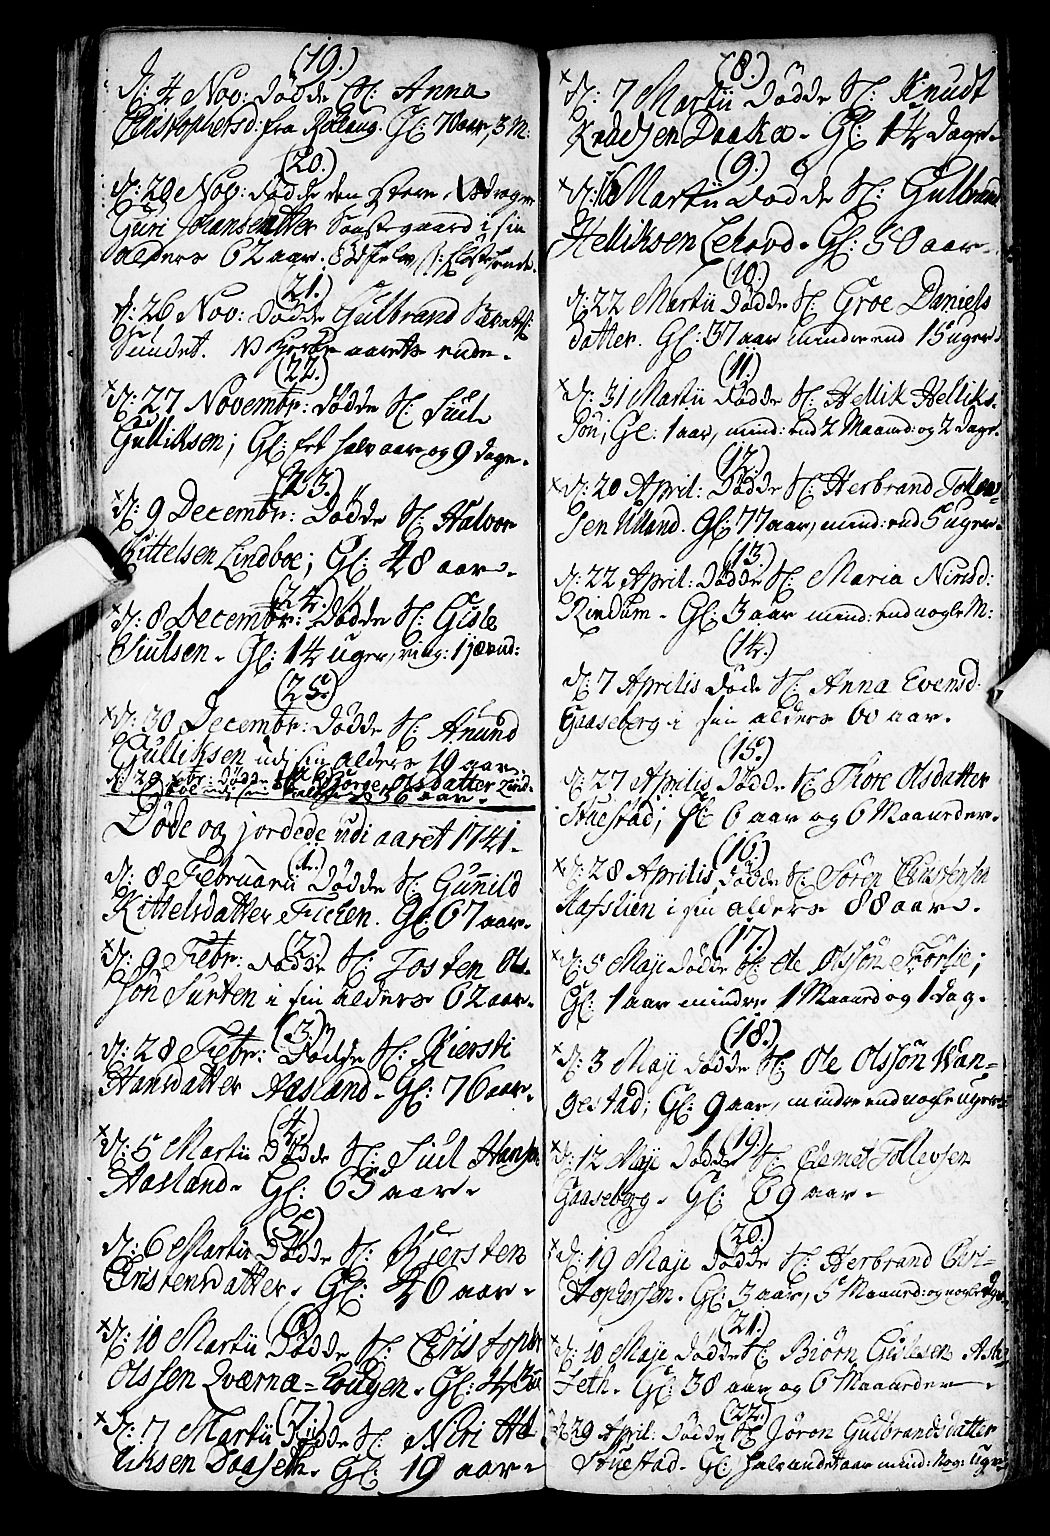 (19.)
D: 4 Nov: Døde S: Anna
Christophersd: fra Gl: 70 aar, 3 M:
(20.)
D: 20 Nov: døde den
Guri Johansdatter i sin
alders 62 aar.
(21.)
D: 26 Nov: Døde Gulbrand
Sundet. aarets ende.
(22.)
D: 27 Novembr: Dødde S: Juul
Gulliksen; Gl: Et halv aar og 9 dage.
(23.)
D: 9 Decembr: Dødde S: Halvor
Kittelsen Lindboe; Gl: 48 aar.
(24.)
D: 8 Decembr: Dødde S: Gisle
Juulsen. Gl: 14 uger,
(25.)
D: 30 Decembr: Dødde S: Anund
Gulliksen udi sin alders 19 aar.
D: 29 Xbr: Dødde Olsdatter
36 aar.
Døde og jordede udi aaret 1741.
(1.)
D: 8 Februarii Dødde S: Gunild
Kittelsdatter Fichen. Gl: 67 aar.
(2.)
D: 9 Febr: Dødde S: Tosten Ols-
søn Surten i sin alders 62 aar.
(3.)
D: 28 Febr: Dødde S: Kiersti
Hansdatter Aasland. Gl: 76 aar.
(4.)
D: 5 Martii Dødde S: Juul Hans
Aasland. Gl: 65 aar.
(5.)
D: 6 Martii Dødde S: Kjersten
Cristensdatter. Gl: 46 aar.
(6.)
D: 10 Martii Dødde S: Christopher
Olssen Qværna=Lougen. Gl:
(7.)
D: 7 Martii Dødde S: Niri Hel-
liksen Gl: 19 aar.
(8.)
D: 7 Martii Dødde S: Knudt
Knudsen Daaka. Gl: 14 dage.
(9.)
D: 16 Martii Dødde S: Gulbrand
Helliksen Gl: 50 aar.
(10.)
D: 22 Martii Dødde S: Groe Daniels
datter. Gl: 37 aar mindre end 15 uger.
(11.)
D: 31 Martii Dødde S: Hellik Helliks-
søn; Gl: 1 aar, mind: end 2 Maaned: og 2 dage.
(12.)
D: 20 April: Dødde S: Herbrand Tollev-
sen Ulland. Gl: 77 aar, mind: end 5 uger.
(13.)
D: 22 April: Dødde S: Maria Nirisd:
Rindum. Gl: 3 aar mind: end nogle M:
(14.)
D: 7 Aprilis Døde S: Anna Evensd:
Gaaseberg i sin alders 60 aar.
(15.)
D: 27 Aprilis Dødde S: Thore Olsdatter
Stuestad; Gl: 6 aar og 6 Maaneder.
(16.)
D: 28 Aprilis Dødde S: Søren Christensen
Hafslien i sin alders 88 aar.
(17.)
D: 5 Maji Dødde S: Ole Olssøn Førlie;
Gl: 1 aar mindre 1 Maaned og 1 dag.
(18.)
D: 3 Maji Dødde S: Ole Olssøn Wan-
gestad; Gl: 9 aar, mindre end nogle uger
(19.)
D: 12 Maji Dødde S: Clemet Tollevsen
Gaaseberg. Gl: 69 aar.
(20.)
D: 19 Maji Dødde S: Herbrand Chri-
stophersen. Gl: 3 aar, 5 Maaned: og nogle dage
(21.)
D: 10 Maji Dødde S: Biørn Gislesen
Gl: 38 aar og 6 Maaneder.
(22.)
D: 29 April: Dødde S: Jøron Gulbrandsdatter
Stuestad. Gl: halvandet aar mind: nog: uger